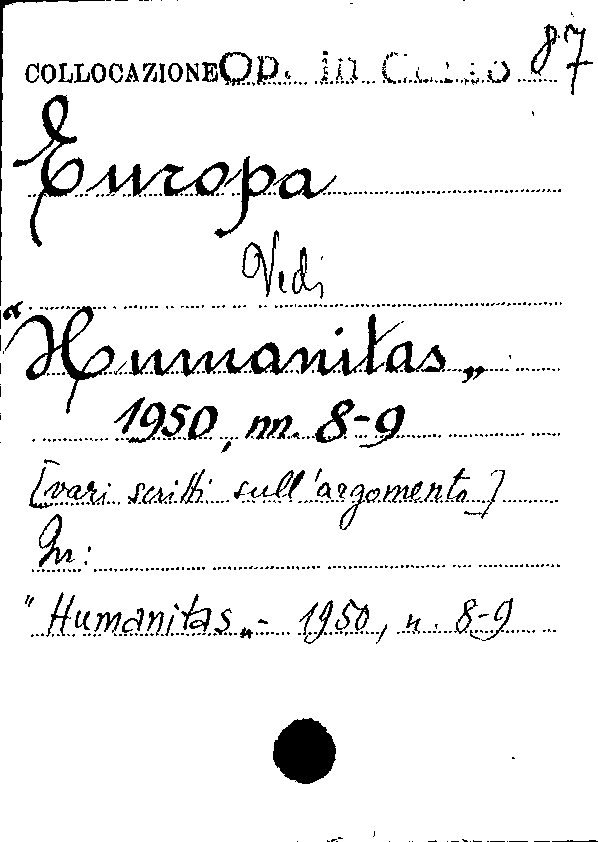 COLLOCAZIONE Op. in Corso 87
Europa
Vedi
"Humanitas„
1950, nn. 8-9
[vari scritti sull'argomento]
In:
"Humanitas„ - 1950, n. 8-9